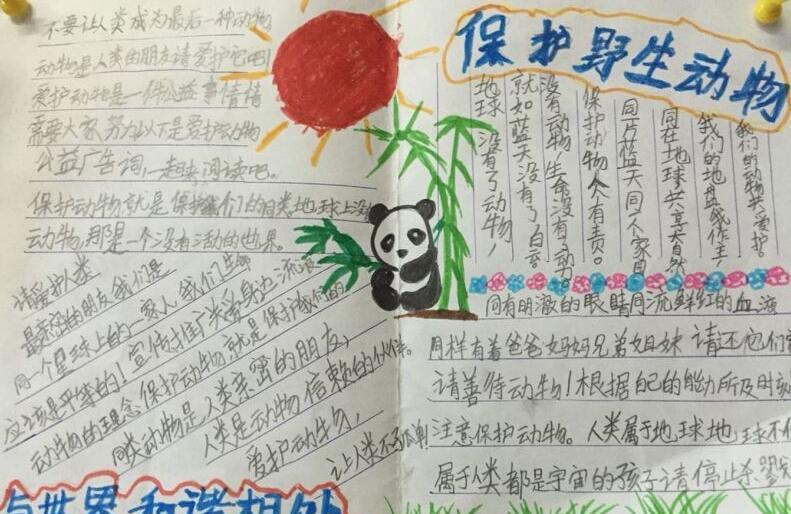 不要让人类成为最后一种动物
动物是人类的朋友请爱护它吧!
爱护动物是一件公益事情情
需要大家努力以下是爱护动物
公益广告词,一起来阅读吧。
保护动物就是保护我们的同类。地球上没
动物,那是一个没有活动的世界。
请爱护人类
最亲密的朋友我们是
同一个星球上的一家人,我们生
应该是平等的!宣传推广关爱身边流浪
动物的理念保护动物就是保护我们的
同类动物是人类亲密的朋友,
人类是动物信赖的伙伴。
爱护动物,
让人类不孤单!
与世界和谐相处
保护野生动物
我们的动物共爱护。
我们的地盘我作主
同在地球共享自然
同一片蓝天同一个家园
保护动物人人有责。
没有动物,生命没有了动。
就如蓝天没有了白云
地球没有了动物,
同有明澈的眼睛同流鲜红的血液
同样有着爸爸妈妈兄弟姐妹 请不它们
请善待动物!根据自己的能力所及时刻
注意保护动物。人类属于地球地球不
属于人类都是宇宙的孩子请停止杀